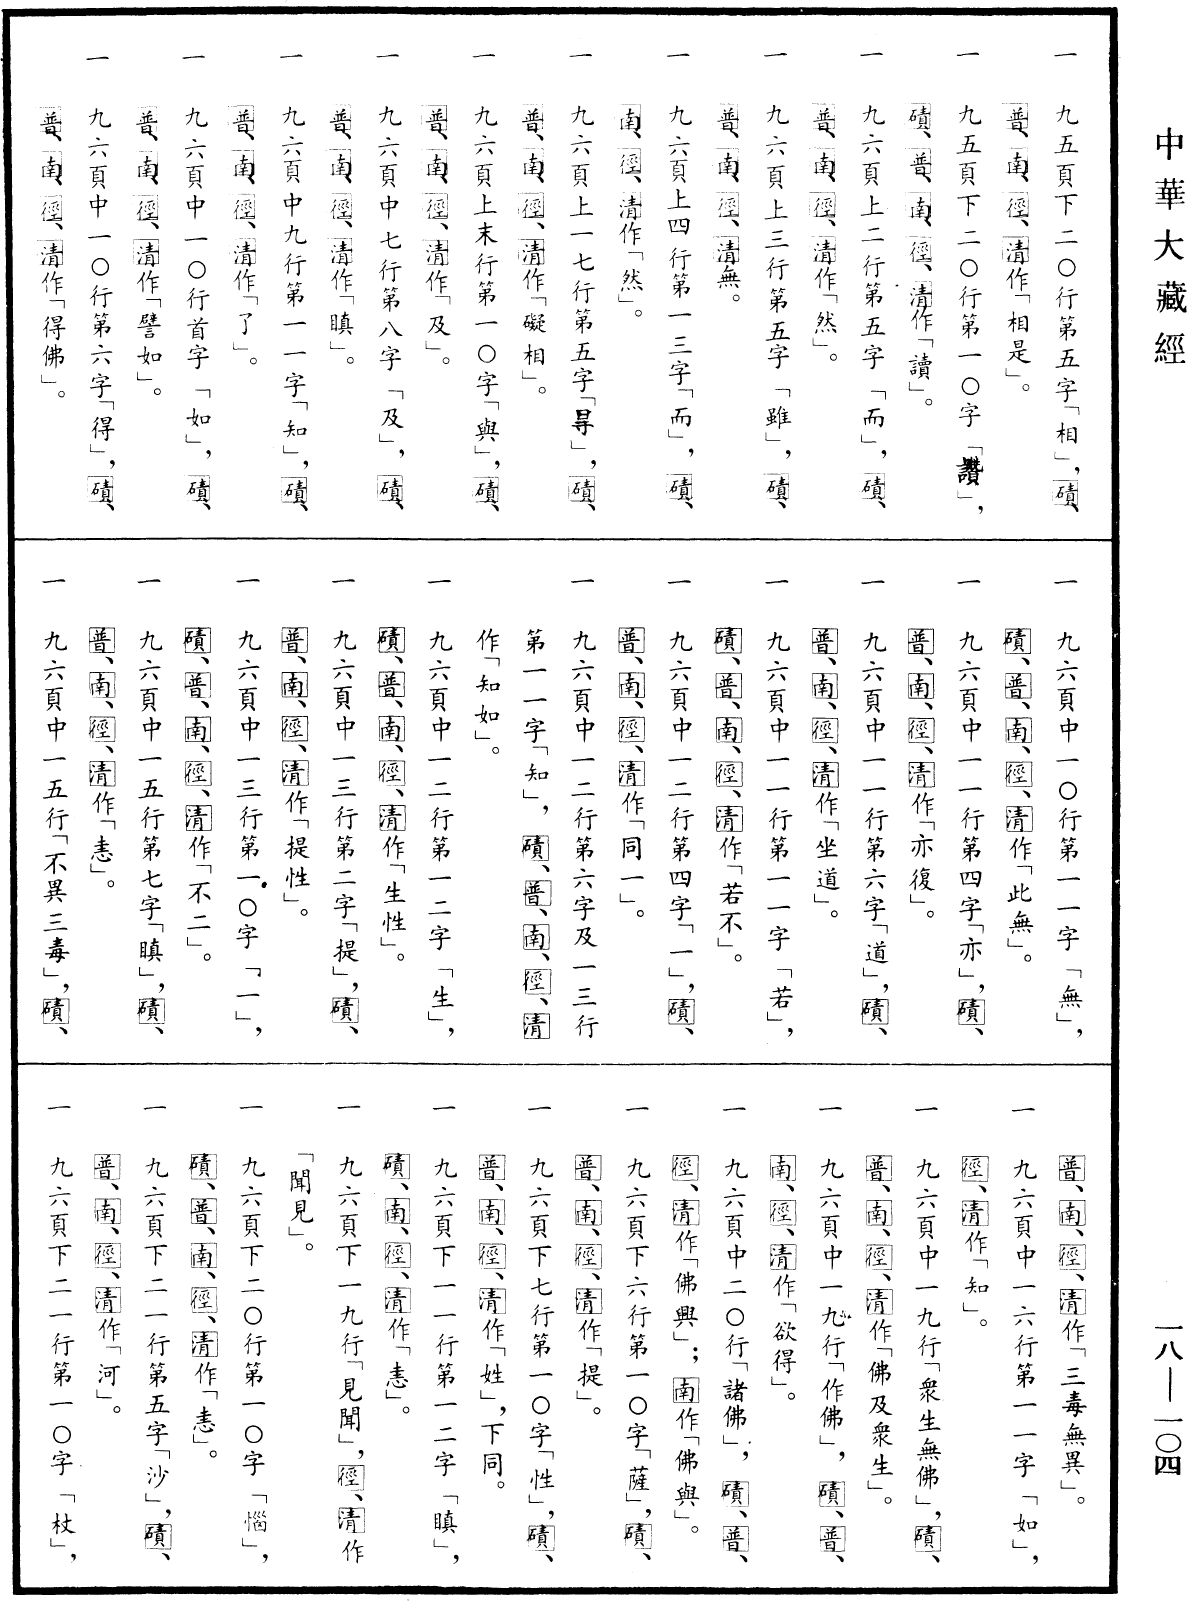 中華大藏經
一 九五頁下二〇行第五字「相」，磧、
普、南、徑、清作「相是」。
一 九五頁下二〇行第一〇字「讚」，
磧、普、南、徑、清作「讀」。
一 九六頁上二行第五字「而」，磧、
普、南、徑、清作「然」。
一 九六頁上三行第五字「雖」，磧、
普、南、徑、清無。
一 九六頁上四行第一三字「而」，磧、
南、徑、清作「然」。
一 九六頁上一七行第五字「㝵」，磧、
普、南、徑、清作「礙相」。
一 九六頁上末行第一〇字「與」，磧、
普、南、徑、清作「及」。
一 九六頁中七行第八字「及」，磧、
普、南、徑、清作「瞋」。
一 九六頁中九行第一一字「知」，磧、
普、南、徑、清作「了」。
一 九六頁中一〇行首字「如」，磧、
普、南、徑、清作「譬如」。
一 九六頁中一〇行第六字「得」，磧、
普、南、徑、清作「得佛」。
一 九六頁中一〇行第一一字「無」，
磧、普、南、徑、清作「此無」。
一 九六頁中一一行第四字「亦」，磧、
普、南、徑、清作「亦復」。
一 九六頁中一一行第六字「道」，磧、
普、南、徑、清作「坐道」。
一 九六頁中一一行第一一字「若」，
磧、普、南、徑、清作「若不」。
一 九六頁中一二行第四字「一」，磧、
普、南、徑、清作「同一」。
一 九六頁中一二行第六字及一三行
第一一字「知」，磧、普、南、徑、清
作「知如」。
一 九六頁中一二行第一二字「生」，
磧、普、南、徑、清作「生性」。
一 九六頁中一三行第二字「提」，磧、
普、南、徑、清作「提性」。
一 九六頁中一三行第一〇字「一」，
磧、普、南、徑、清作「不二」。
一 九六頁中一五行第七字「瞋」，磧、
普、南、徑、清作「恚」。
一 九六頁中一五行「不異三毒」，磧、
普、南、徑、清作「三毒無異」。
一 九六頁中一六行第一一字「如」，
徑、清作「知」。
一 九六頁中一九行「衆生無佛」，磧、
普、南、徑、清作「佛及衆生」。
一 九六頁中一九行「作佛」，磧、普、
南、徑、清作「欲得」。
一 九六頁中二〇行「諸佛」，磧、普、
徑、清作「佛興」；南作「佛與」。
一 九六頁下六行第一〇字「薩」，磧、
普、南、徑、清作「提」。
一 九六頁下七行第一〇字「性」，磧、
普、南、徑、清作「姓」，下同。
一 九六頁下一一行第一二字「瞋」，
磧、南、徑、清作「恚」。
一 九六頁下一九行「見聞」，徑、清作
「聞見」。
一 九六頁下二〇行第一〇字「惱」，
磧、普、南、徑、清作「恚」。
一 九六頁下二一行第五字「沙」，磧、
普、南、徑、清作「河」。
一 九六頁下二一行第一〇字「杖」，
一八—一〇四